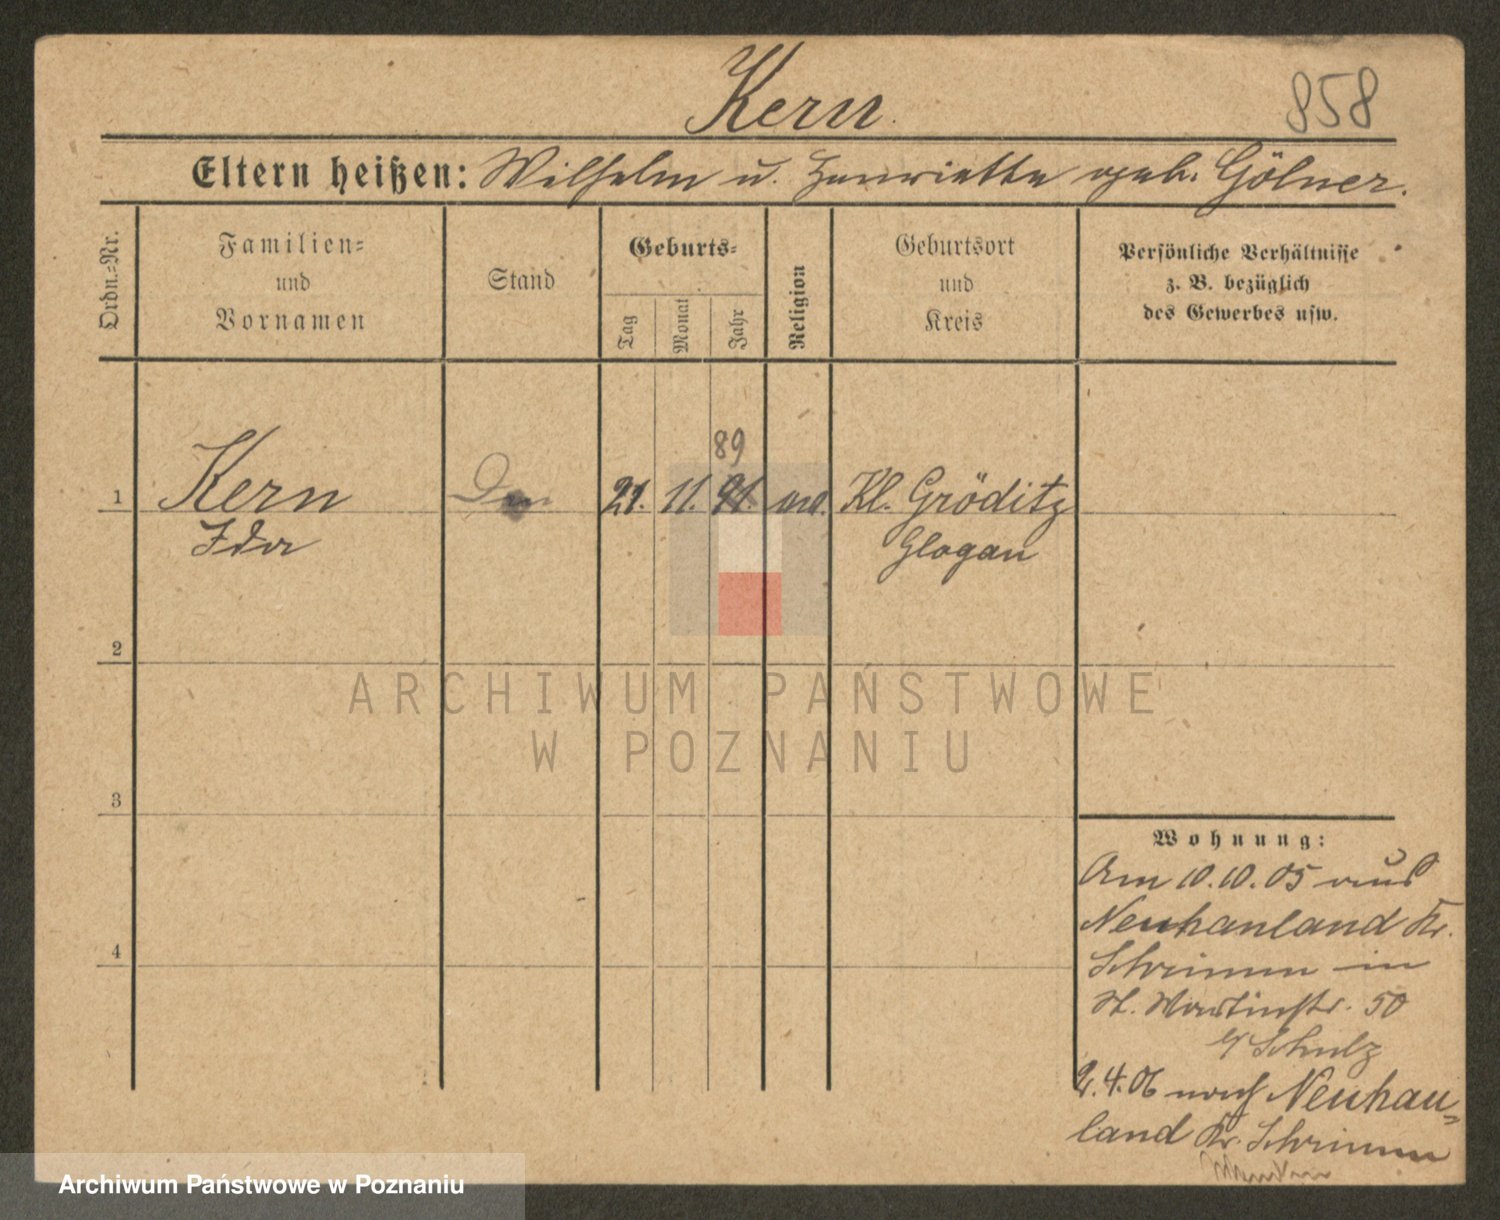 Kern.
858
Eltern heißen: Wilhelm u. Henriette geb. Gölner.
Ordn.=Nr.
Familien=
und
Vornamen
Stand
Geburts=
Tag
Monat
Jahr
Religion
Geburtsort
und
Kreis
Persönliche Verhältnisse
z. B. bezüglich
des Gewerbes usw.
89
1 Kern 21. 11. 91. Kl. Gröditz
Ida Glogau
2
3
4
Wohnung:
Am 10.10.05 aus
Neuhauland Kr.
Schrimm in
St. Martinstr. 50
b/ Schulz
2.4.06 nach Neuhau-
land Kr. Schrimm
ARCHIWUM PAŃSTWOWE
W POZNANIU
Archiwum Państwowe w Poznaniu